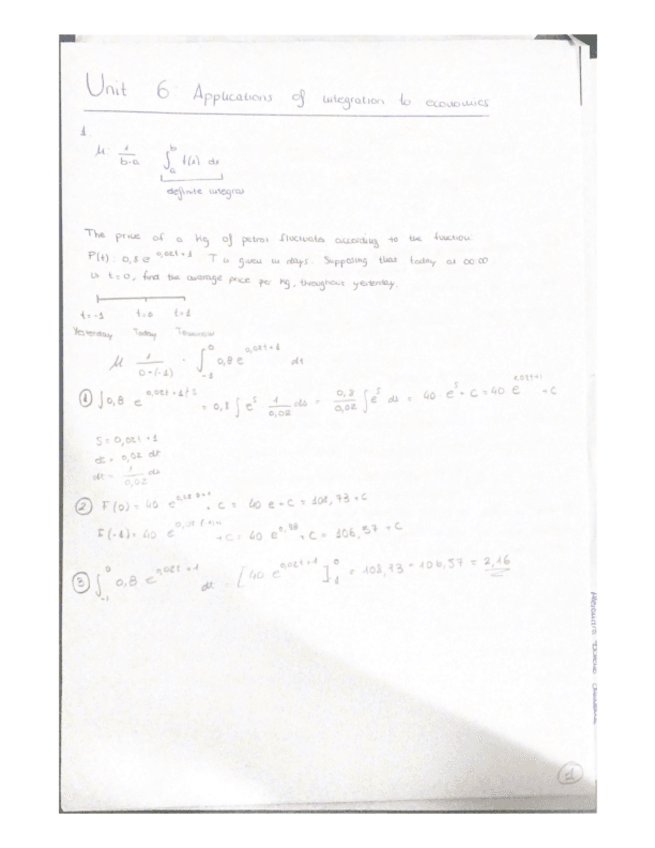 Unit 6 Applications of integration to economics
1.
M: 1/b-a ∫_a^b f(x) dx
definite integral
The price of a kg of petrol fluctuates according to the function:
P(t): 0,8 e^0,02t+1 T is given in days. Supposing that today at 00:00
is t=0, find the average price per kg, throughout yesterday.
t=-1 t=0 t=1
Yesterday Today Tomorrow
M 1/0-(-1) · ∫_-1^0 0,8 e^0,02t+1 dt
① ∫0,8 e^0,02t+1 = 0,8 ∫e^s 1/0,02 ds = 0,8/0,02 ∫e^s ds = 40 · e^s + C = 40 e^0,02t+1 + C
S = 0,02t + 1
ds = 0,02 dt
dt = 1/0,02 ds
② F(0) = 40 e^0,02·0+1 + C = 40 e + C = 108,73 + C
F(-1) = 40 + C = 40 e^0,98 + C = 106,57 + C
③ ∫_-1^0 0,8 e^0,02t+1 dt = [40 e^0,02t+1]_-1^0 = 108,73 - 106,57 = 2,16
1